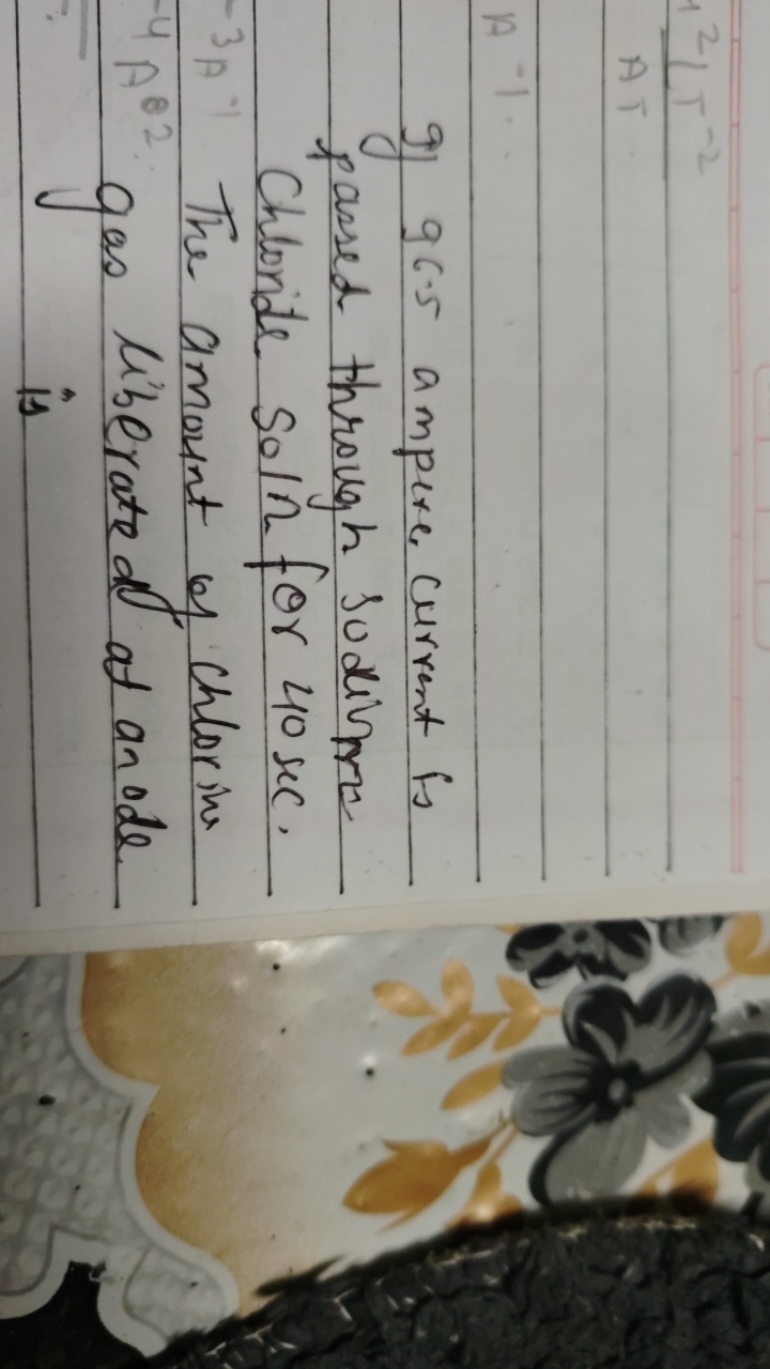 M²LT⁻²
AT
A⁻¹.
9) 96.5 ampere current is
passed through sodium
Chloride soln for 40 sec.
-3 A⁻¹ The amount of chlorine
gas liberated at anode
is